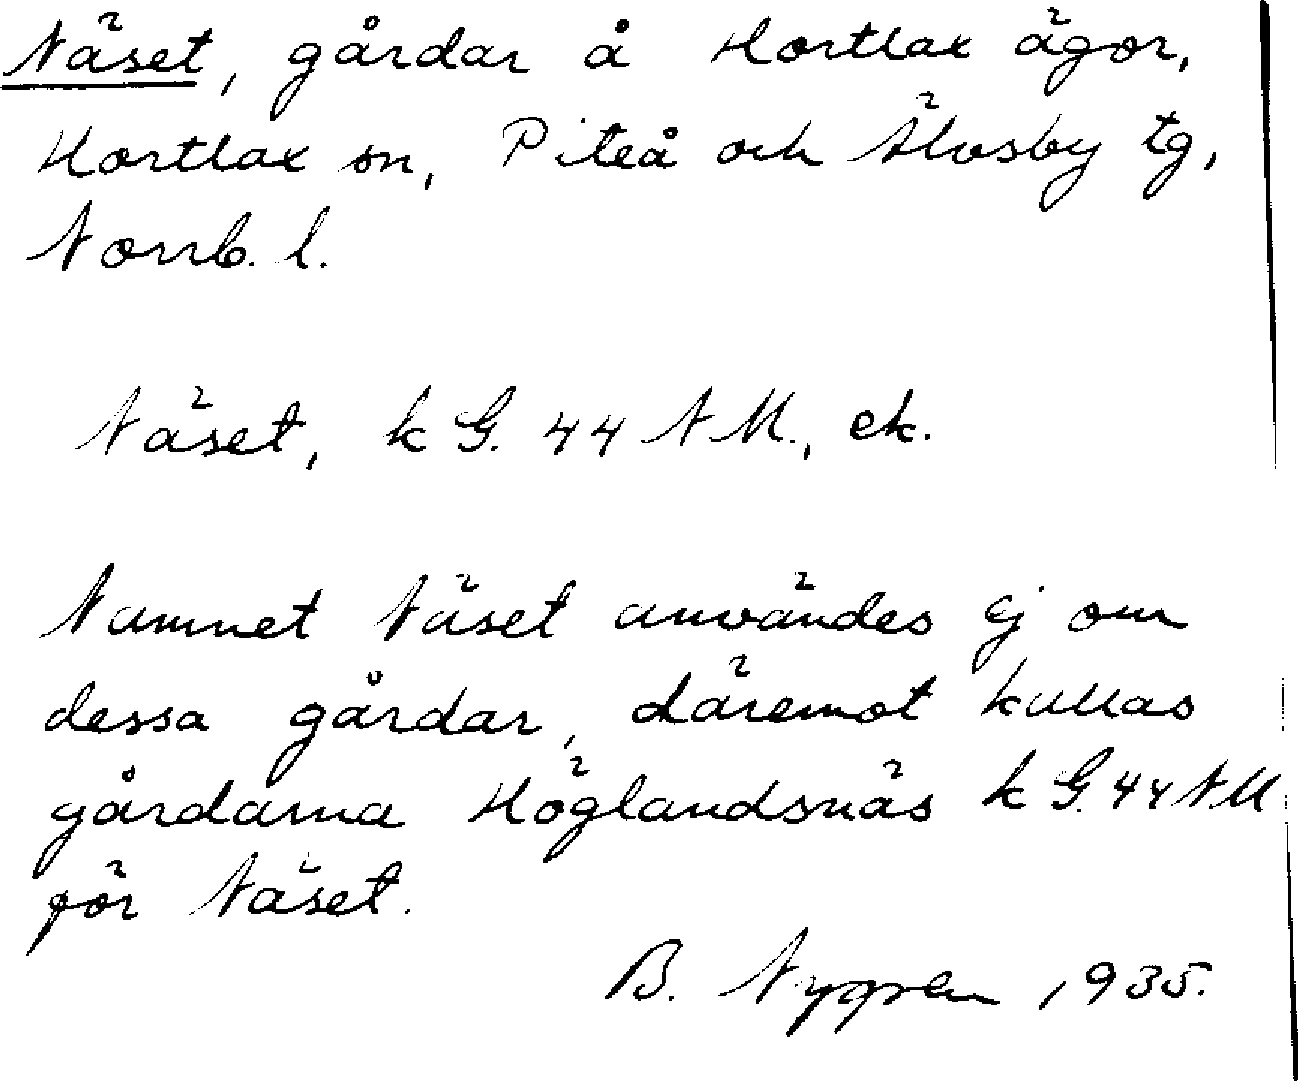 Näset, gårdar å Hortlax ägor,
Hortlax sn, Piteå och Älvsby tg,
Norrb. l.
Näset, k G. 44 NM., ek.
Namnet Näset användes ej om
dessa gårdar, däremot kallas
gårdarna Höglandsnäs k G. 44 NM
för Näset.
B. Nygren 1935.